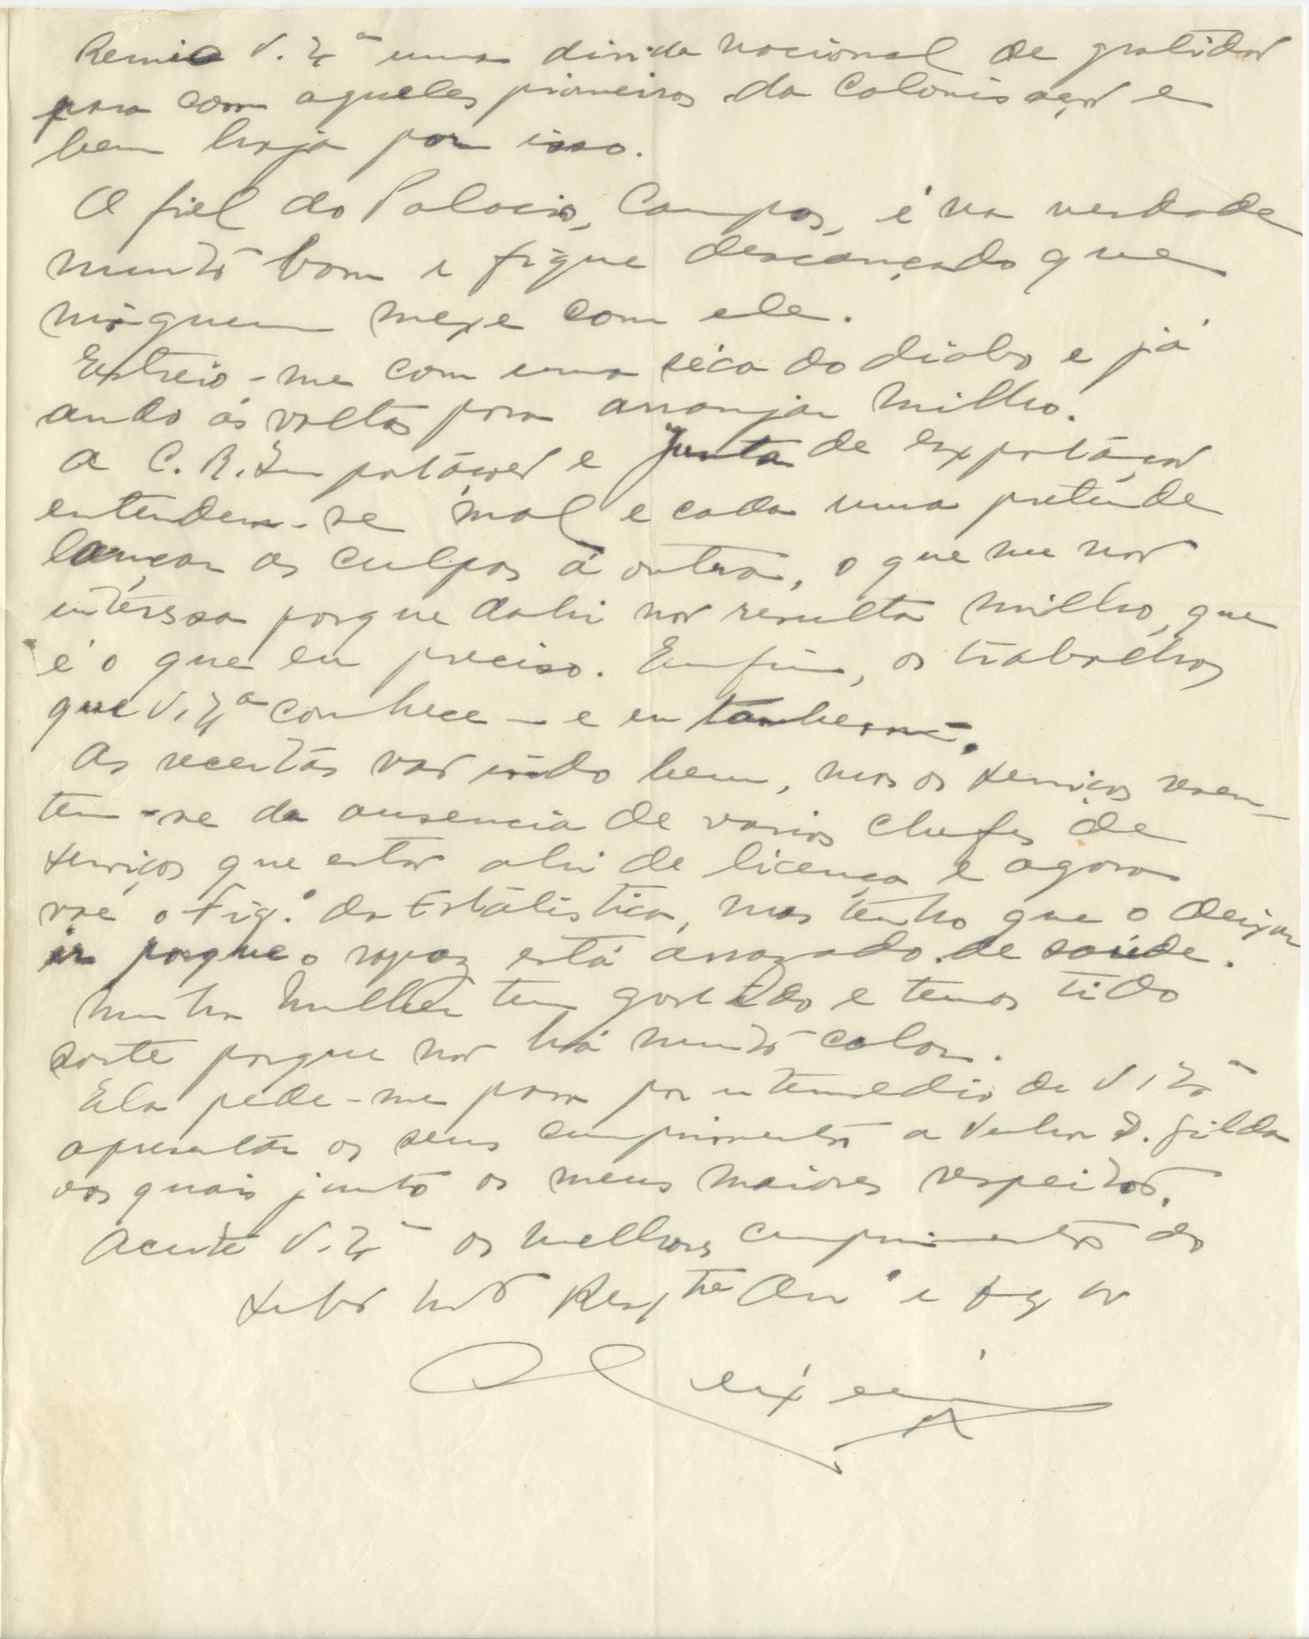 Remio V. Exª uma divida nacional de gratidão
para com aqueles pioneiros da colonisação e
bem haja por isso.
O fiel do Palacio, Campos, é na verdade
muito bom e fique descançado que
ninguem mexe com ele.
Estreio-me com uma séca do diabo e já
ando ás voltas para arranjar milho.
A C. R. Importação e Junta de Exportação
entendem-se mal e cada uma pretende
lançar as culpas á outra, o que me não
interssa porque dahi não resulta milho, que
é o que eu preciso. Emfim, os trabalhos
que V. Exª conhece - e eu tambem.
As receitas vão indo bem, mas os serviços resen-
tem-se da ausencia de varios chefes de
serviços que estão ahi de licença e agora
vae o Fig.º da Estatistica, mas tenho que o deixar
ir porque o rapaz está arrazado de saúde.
Minha Mulher tem gostado e temos tido
sorte porque não há muito calor.
Ela pede-me para por intermedio de V. Exª
apresentar os seus cumprimentos a Senhora D. Gilda
aos quais junto os meus maiores respeitos.
Aceite V. Exª os melhores cumprimentos do
Mtº Respte Amº e